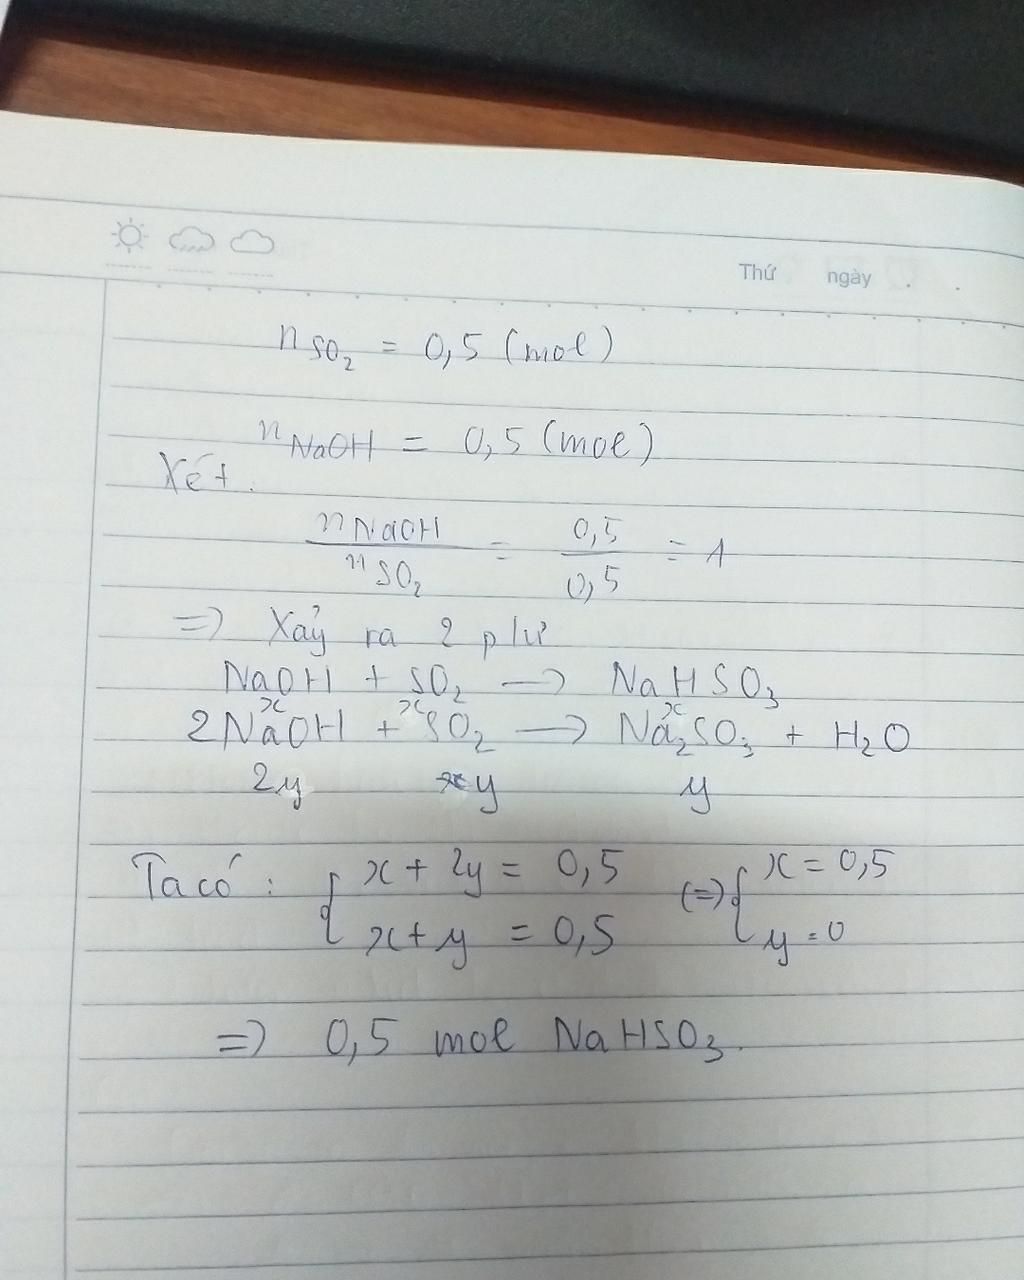 Thứ ngày
n SO₂ = 0,5 (mol)
n NaOH = 0,5 (mol)
Xét.
n NaOH / n SO₂ = 0,5 / 0,5 = 1
=> Xảy ra 2 pứ
NaOH + SO₂ → NaHSO₃
x x x
2NaOH + SO₂ → Na₂SO₃ + H₂O
2y y y
Ta có: { x + 2y = 0,5 (=>) { x = 0,5
x + y = 0,5 y = 0
=> 0,5 mol NaHSO₃.